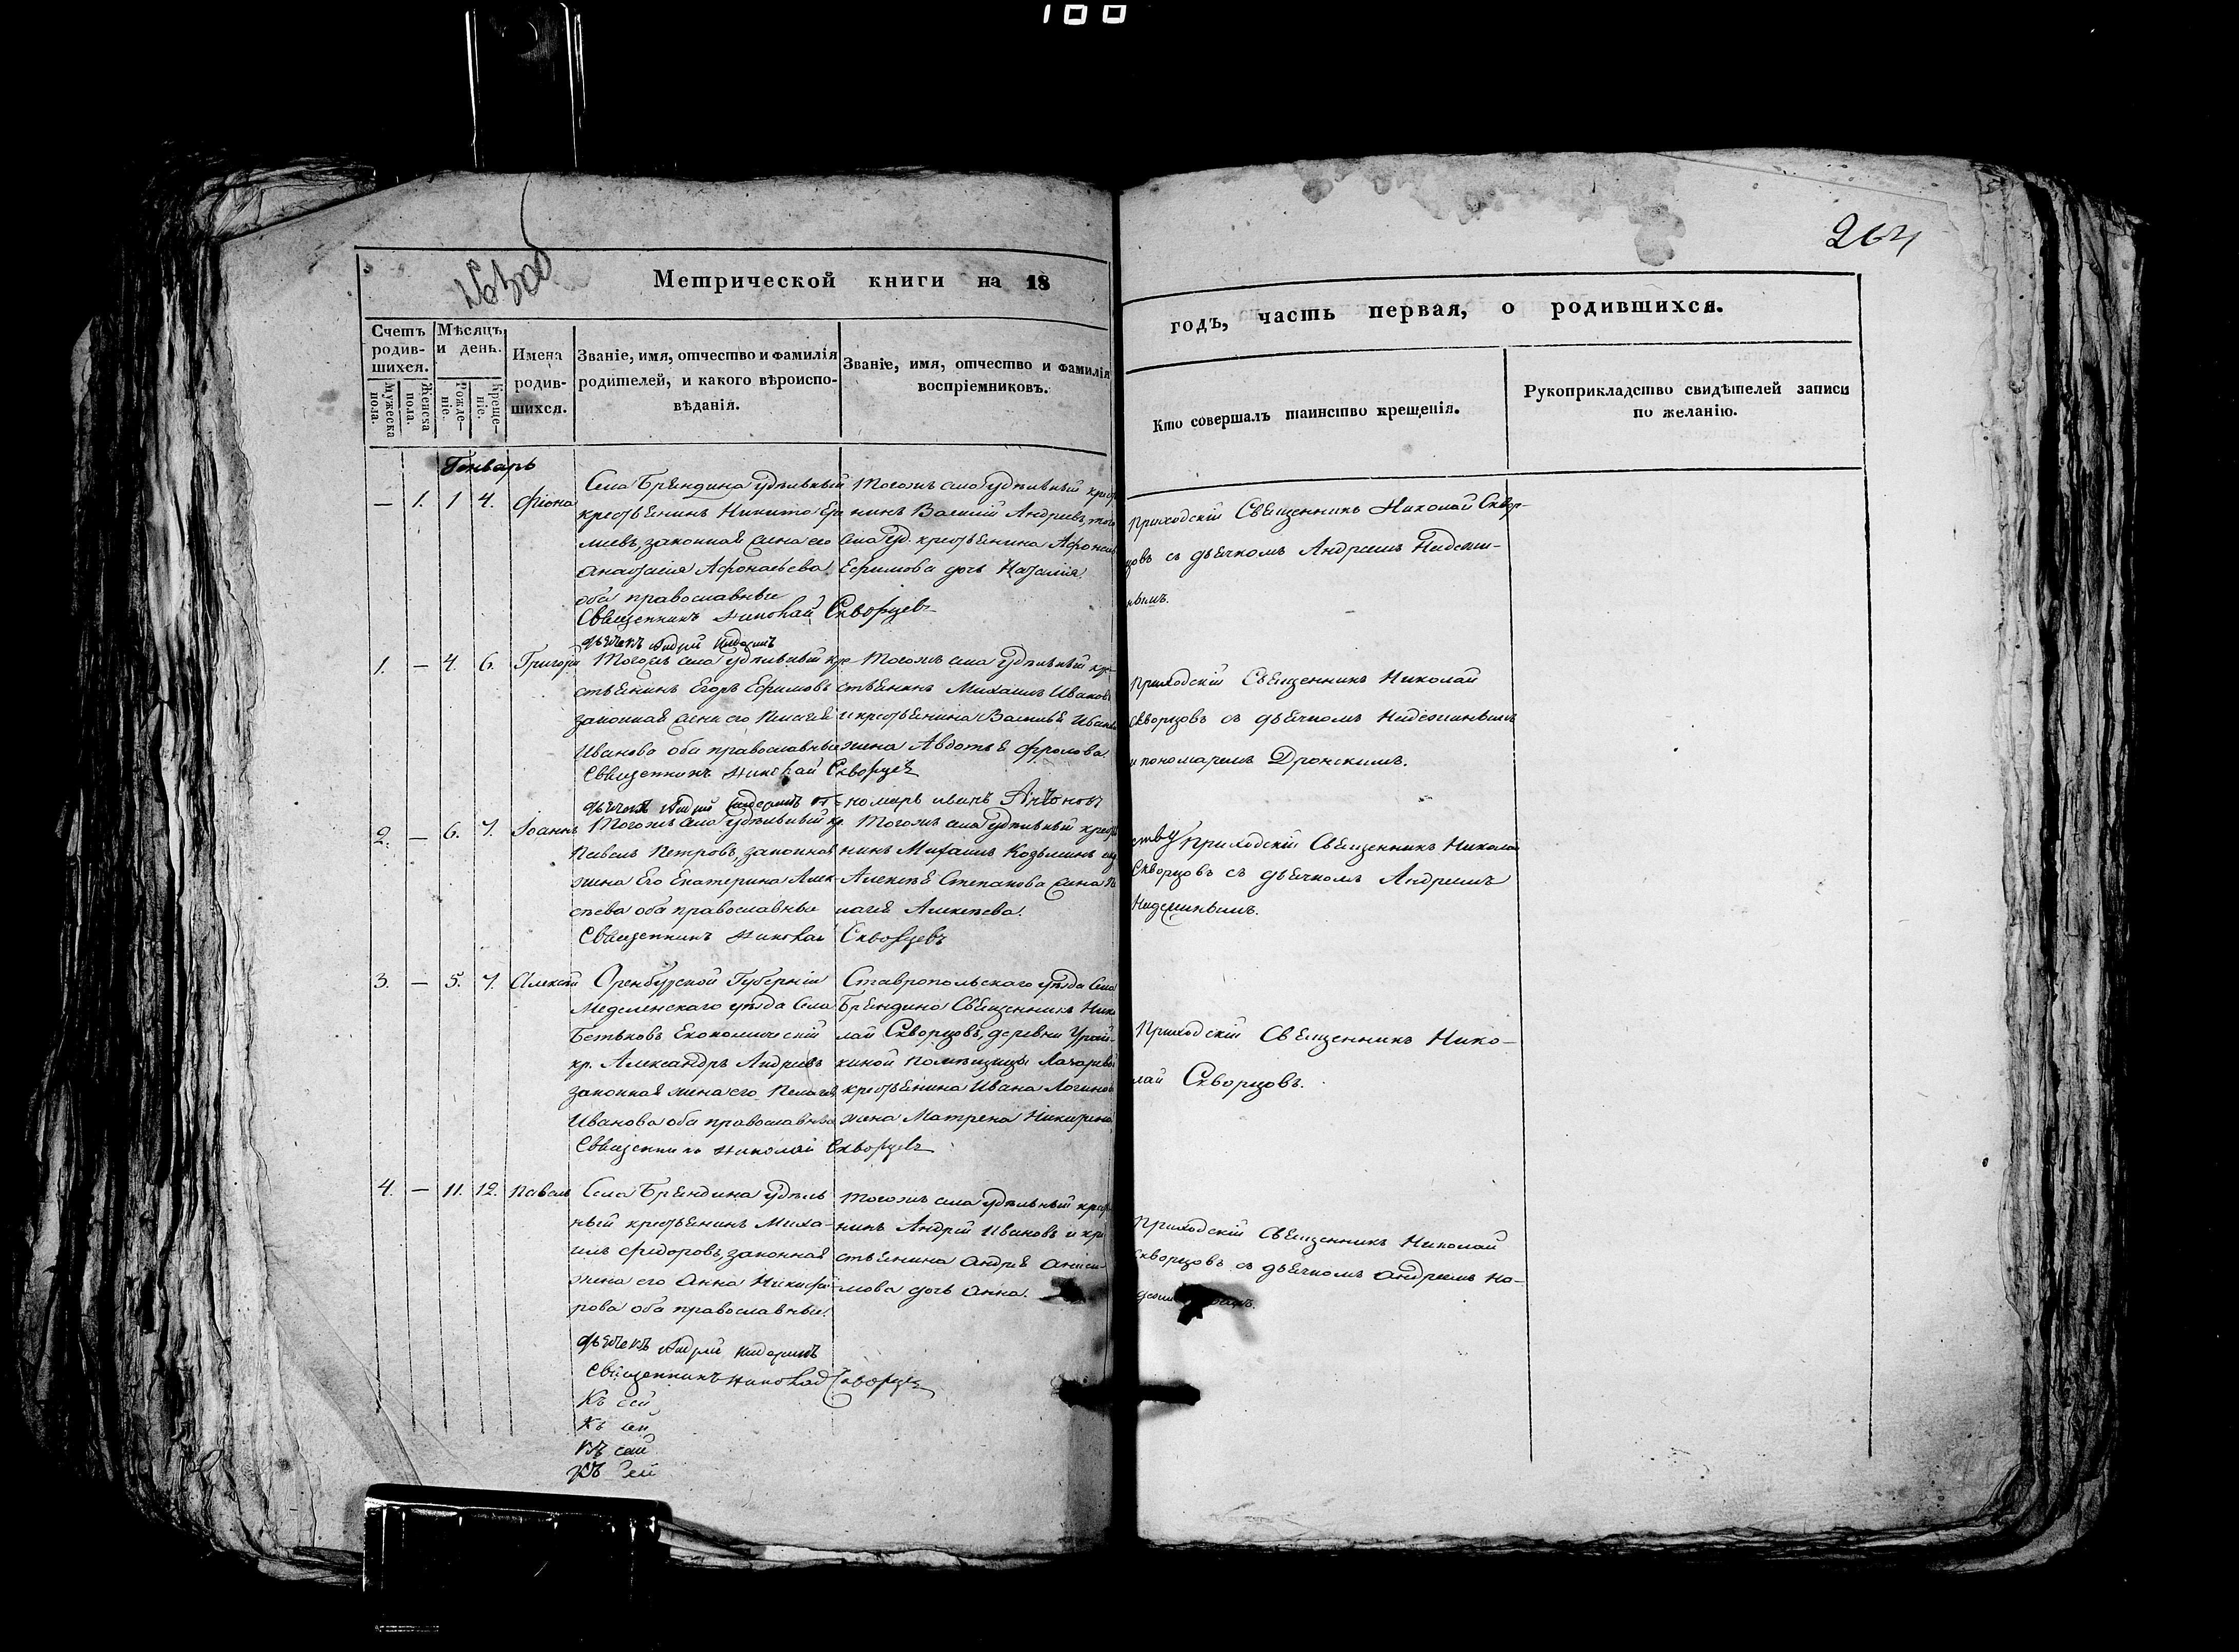 100
264
Метрической книги на 18
годъ, часть первая, о родившихся.
Счетъ родив-шихся.
Мужеска пола.
Женска пола.
Мѣсяцъ и день.
Рожде-ніе.
Креще-ніе.
Имена родив-шихся.
Званіе, имя, отчество и фамилія родителей, и какого вѣроиспо-вѣданія.
Званіе, имя, отчество и фамилія воспріемниковъ.
Кто совершалъ таинство крещенія.
Рукоприкладство свидѣтелей записи по желанію.
Генварь
— 1. 1 4. Фіона
Села Брендина удѣльный
крестьенинъ Никита
законная жена его
Анастасія Афонасьева
оба православные
Священникъ Николай Скворцовъ
Тогожъ села удѣльный крест
нинъ Василій Андреевъ, того
села уд. крестьенина Афонас
Ефимова дочь Наталія.
Приходскій Священникъ Николай Сквор-
цовъ съ дьячкомъ Андреемъ Надежи-
нымъ.
дьячекъ Андрей
1. — 4. 6. Григорій
Тогожъ села удѣльный кре-
стьенинъ Егоръ Ефимовъ
законная жена его Пелагея
Иванова оба православные
Священникъ Николай Скворцовъ
Тогожъ села удѣльный кре-
стьенинъ Михаилъ Ивановъ
и крестьенина Василья Иван
жена Авдотья Фролова.
Приходскій Священникъ Николай
Скворцовъ съ дьячкомъ Надежинымъ
и пономаремъ Дронскимъ.
дьячекъ Андрей по-номарь Иванъ
2. — 6. 7. Іоаннъ
Тогожъ села удѣльный кр.
Павелъ Петровъ, законная
жена его Екатерина Алек-
сѣева оба православные
Священникъ Николай Скворцовъ
Тогожъ села удѣльный крест
нинъ Михаилъ Козьминъ
Алексѣя Степанова жена Пе
лагея Алексѣева.
Приходскій Священникъ Николай
Скворцовъ съ дьячкомъ Андреемъ
Надежинымъ.
3. — 5. 7. Алексѣй
Оренбургской Губерніи
уѣзда Села
Бетьковъ Економическій
кр. Александръ Андреевъ
законная жена его Пелагея
Иванова оба православные
Священникъ Николай Скворцовъ
Ставропольскаго уѣзда Села
Брендина Священникъ Нико
лай Скворцовъ, деревни Урай-
киной помѣщицы
крестьенина Ивана Логинова
жена Матрена Никитина.
Приходскій Священникъ Нико-
лай Скворцовъ.
4. — 11. 12. Павелъ
Села Брендина удѣль
ный крестьенинъ Миха-
илъ Федоровъ, законная
жена его Анна Никифо-
рова оба православные.
Тогожъ села удѣльный крест
нинъ Андрей Ивановъ и кре
стьенина Андрея Аниси-
мова дочь Анна.
Приходскій Священникъ Николай
Скворцовъ съ дьячкомъ Андреемъ На-
дьячекъ Андрей
Священникъ Николай Скворцовъ
Къ сей
Къ сей
Къ сей
Къ сей